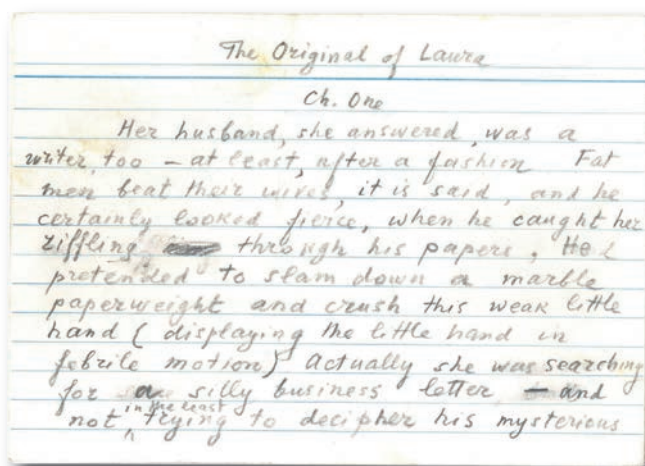 The Original of Laura
Ch. One
Her husband, she answered, was a
writer, too – at least, after a fashion. Fat
men beat their wives, it is said, and he
certainly looked fierce, when he caught her
riffling through his papers. He
pretended to slam down a marble
paperweight and crush this weak little
hand (displaying the little hand in
febrile motion) Actually she was searching
for a silly business letter – and
not in the least trying to decipher his mysterious